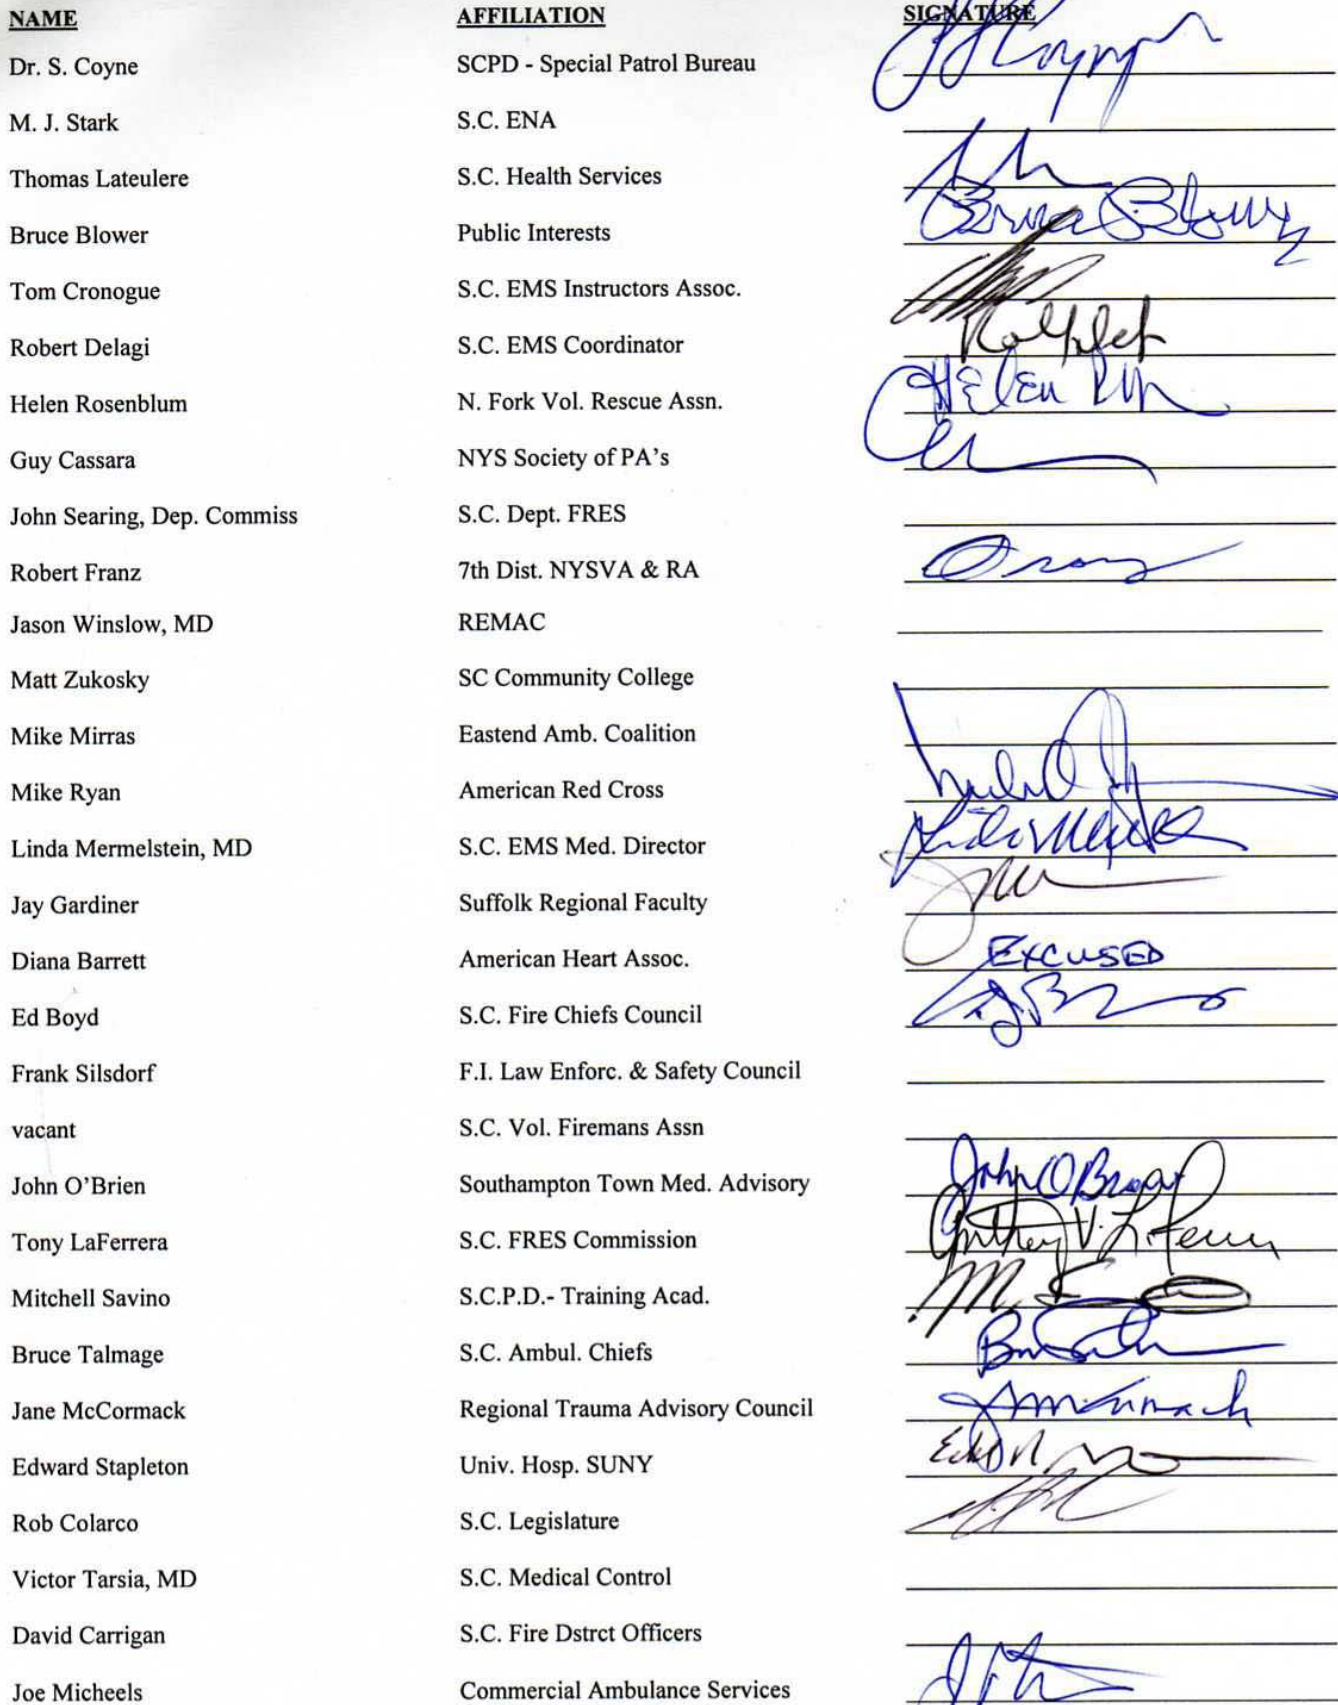 NAME AFFILIATION SIGNATURE
Dr. S. Coyne SCPD - Special Patrol Bureau
M. J. Stark S.C. ENA
Thomas Lateulere S.C. Health Services
Bruce Blower Public Interests
Tom Cronogue S.C. EMS Instructors Assoc.
Robert Delagi S.C. EMS Coordinator
Helen Rosenblum N. Fork Vol. Rescue Assn. Helen
Guy Cassara NYS Society of PA's
John Searing, Dep. Commiss S.C. Dept. FRES
Robert Franz 7th Dist. NYSVA & RA
Jason Winslow, MD REMAC
Matt Zukosky SC Community College
Mike Mirras Eastend Amb. Coalition
Mike Ryan American Red Cross
Linda Mermelstein, MD S.C. EMS Med. Director
Jay Gardiner Suffolk Regional Faculty
Diana Barrett American Heart Assoc. EXCUSED
Ed Boyd S.C. Fire Chiefs Council
Frank Silsdorf F.I. Law Enforc. & Safety Council
vacant S.C. Vol. Firemans Assn
John O'Brien Southampton Town Med. Advisory John O'Brien
Tony LaFerrera S.C. FRES Commission Anthony V. LaFerrera
Mitchell Savino S.C.P.D.- Training Acad.
Bruce Talmage S.C. Ambul. Chiefs
Jane McCormack Regional Trauma Advisory Council
Edward Stapleton Univ. Hosp. SUNY
Rob Colarco S.C. Legislature
Victor Tarsia, MD S.C. Medical Control
David Carrigan S.C. Fire Dstrct Officers
Joe Micheels Commercial Ambulance Services